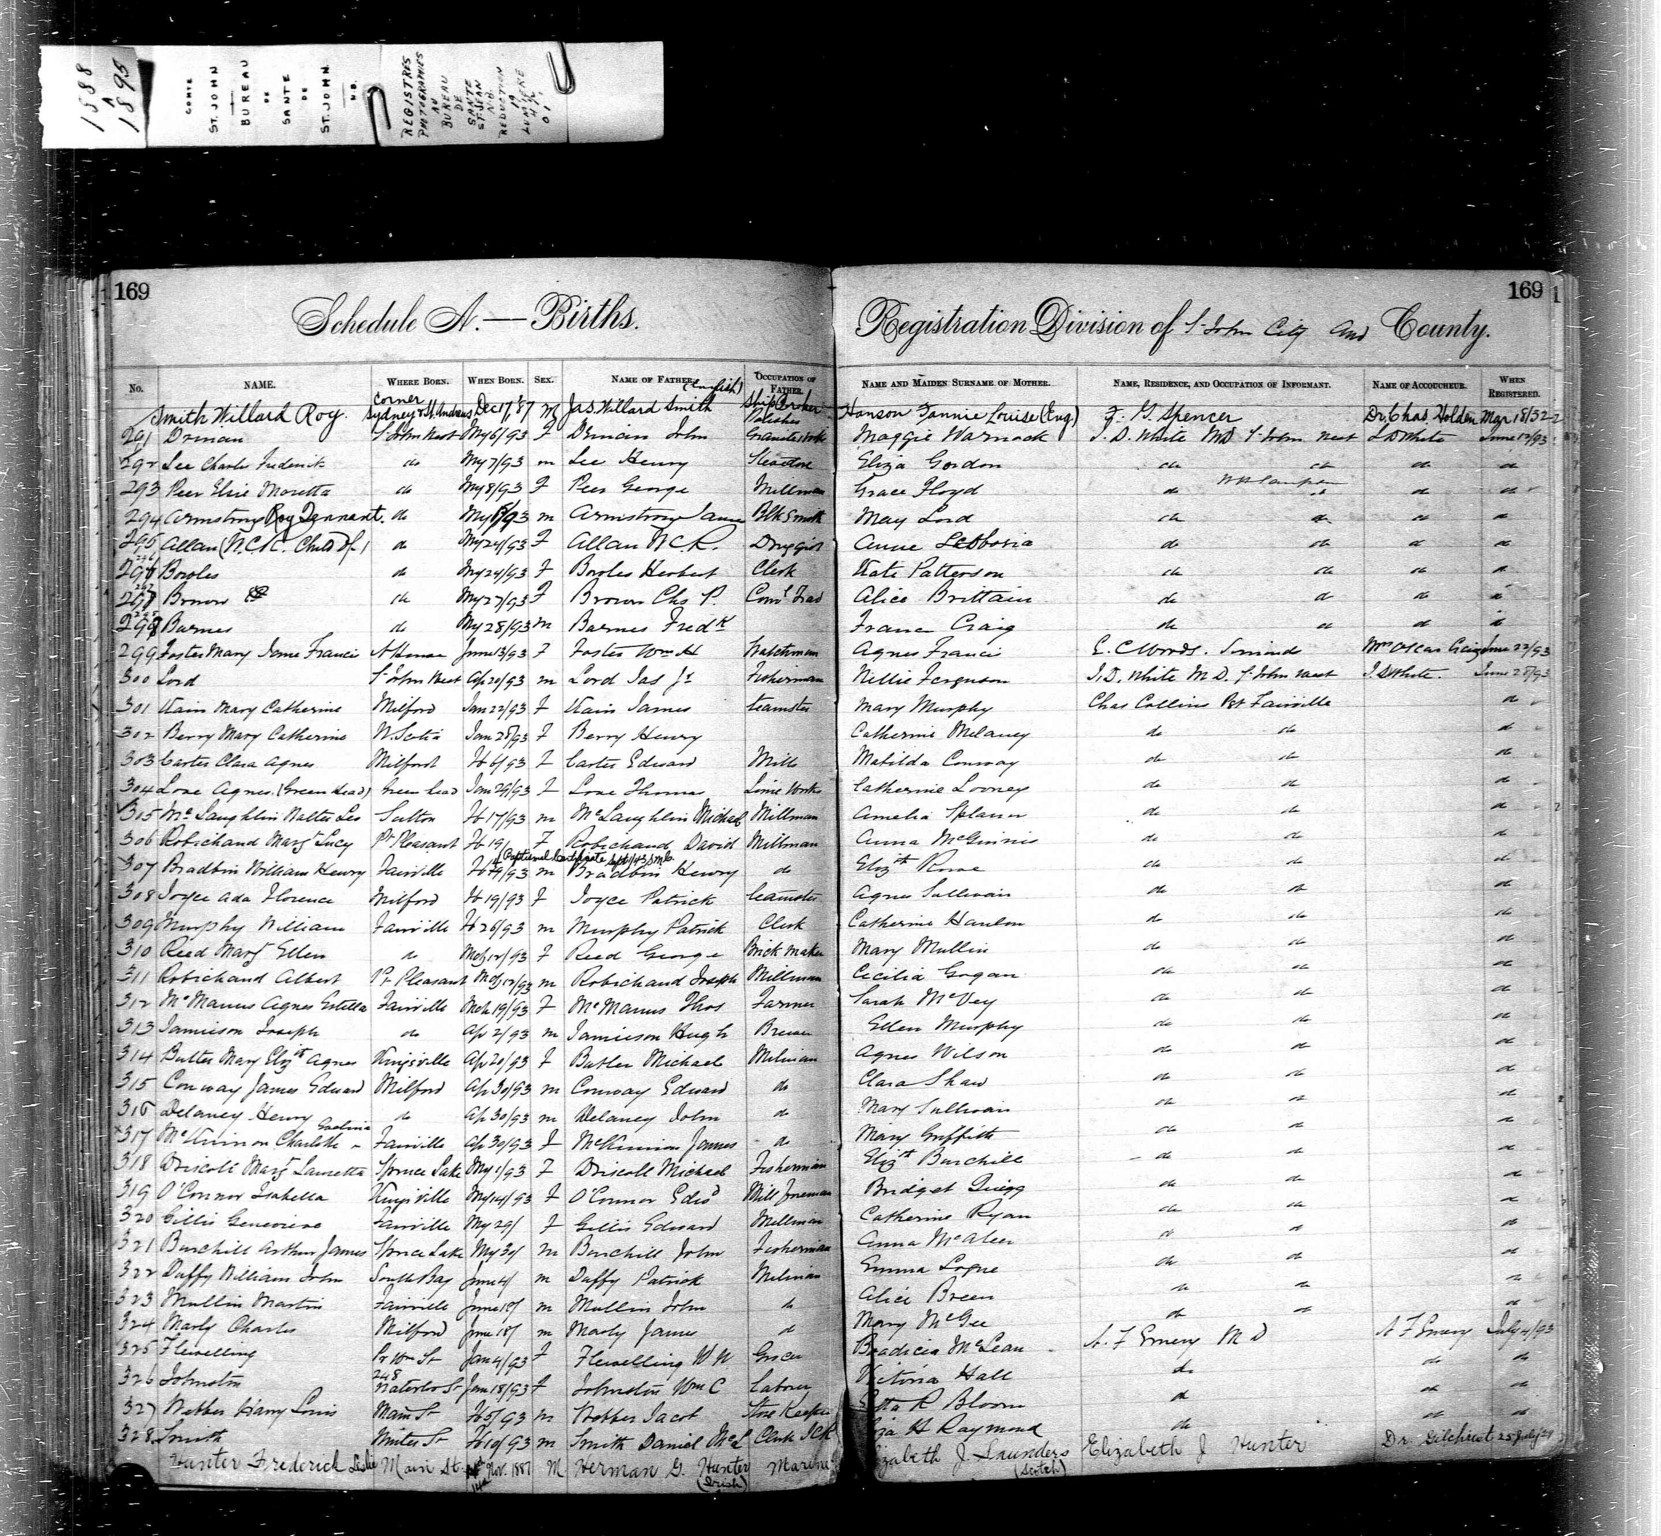 1588
A
1895
COMTE
ST. JOHN
BUREAU
DE
SANTE
DE
ST. JOHN
N.B.
REGISTRES
PHOTOGRAPHIES
AU
BUREAU
DE
SANTE
ST-JEAN
N.B.
REDUCTION
19
LUMIERE
169 169
Schedule A.—Births. Registration Division of St John City and County.
No. NAME. WHERE BORN. WHEN BORN. SEX. NAME OF FATHER. (English) OCCUPATION OF FATHER. NAME AND MAIDEN SURNAME OF MOTHER. NAME, RESIDENCE, AND OCCUPATION OF INFORMANT. NAME OF ACCOUCHEUR. WHEN REGISTERED.
Smith Willard Roy. corner Sydney & St. Andrews Dec 17, '87 M Jas. Willard Smith Ship Broker Hanson Fannie Louise (Eng) F. G. Spencer Dr. Chas. Holden Mar 18/32
291 Drinan St John West My 6/93 F Drinan John Polisher Granite works Maggie Warnock J. D. White MD St John West J D White June 12/93
292 Lee Charles Frederick do My 7/93 m Lee Henry Eliza Gordon do do do do
293 Peer Elsie Moretta do My 8/93 F Peer George Millman Grace Floyd do do do do
294 Armstrong Roy Tennant. do My /93 m Armstrong James Blk Smith May Lord do do do do
295 Allan (W.C.R. Child of) do My 24/93 F Allan W.C.R. Druggist Annie do do do do
296 Bowles do My 24/93 F Bowles Herbert Clerk Kate Patterson do do do do
297 Brown do My 27/93 F Brown Chs P. Com'l Trav Alice Brittain do do do do
298 Barnes do My 28/93 m Barnes Fredk Frances Craig do do do do
299 Foster Mary Irene Francis June 13/93 F Foster Wm H Watchman Agnes Francis E. C. Woods. Simonds Mrs Oscar Craig June 23/93
300 Lord St John West Ap 20/93 m Lord Jas Jr Fisherman Nellie Ferguson J. D. White M D. St John West J. D White. June 28/93
301 Kain Mary Catherine Milford Jan 22/93 F Kain James teamster Mary Murphy Chas Collins Pst Fairville do
302 Berry Mary Catherine N. Scotia Jan 28/93 F Berry Henry Catherine Melaney do do do
303 Carter Clara Agnes Milford Fb 6/93 F Carter Edward Mills Matilda Conway do do do
304 Love Agnes (Green Head) Green head Jan 29/93 F Love Thomas Lime Works Catherine Looney do do do
305 McLaughlin Walter Leo Sutton Fb 17/93 m McLaughlin Michael Millman Amelia Splann do do do
306 Robichaud Margt Lucy Pt Pleasant Fb 19/ F Robichaud David Millman Anna McGinnis do do do
(Baptismal Certificate Sept/43
307 Bradbin William Henry Fairville Fb 19/93 m Bradbin Henry do Elizth Rowe do do do
308 Joyce Ada Florence Milford Fb 19/93 F Joyce Patrick teamster Agnes Sullivan do do do
309 Murphy William Fairville Fb 26/93 m Murphy Patrick Clerk Catherine Hanlon do do do
310 Reed Margt Ellen do Mch 12/93 F Reed George Brick maker Mary Mullin do do do
311 Robichaud Albert Pt Pleasant Mch 12/93 m Robichaud Joseph Millman Cecilia Gogan do do do
312 McManus Agnes Estella Fairville Mch 19/93 F McManus Thos Farmer Sarah McVey do do do
313 Jamieson Joseph do Ap 2/93 m Jamieson Hugh Brewer Ellen Murphy do do do
314 Butler Mary Elizth Agnes Kingsville Ap 20/93 F Butler Michael Milman Agnes Wilson do do do
315 Conway James Edward Milford Ap 30/93 m Conway Edward do Clara Shaw do do do
316 Delaney Henry do Ap 30/93 m Delaney John do Mary Sullivan do do do
317 McKinnon Charlotte Fairville Ap 30/93 F McKinnon James do Mary Griffith do do do
318 Driscoll Margt Lauretta Spruce Lake My 1/93 F Driscoll Michael Fisherman Elizth Burchill do do do
319 O'Connor Isabella Kingsville My 14/93 F O'Connor Edwd Mill foreman Bridget Quigg do do do
320 Gillis Genevieve Fairville My 29/ F Gillis Edward Millman Catherine Ryan do do do
321 Burchill Arthur James Spruce Lake My 30/ m Burchill John Fisherman Anna McAleer do do do
322 Duffy William John South Bay June 4/ m Duffy Patrick Milman Emma Logue do do do
323 Mullin Martin Fairville June 10/ m Mullin John do Alice Breen do do do
324 Marly Charles Milford June 18/ m Marly James do Mary McGee do do do
325 Flewelling Pr Wm St Jan 4/93 F Flewelling W W Grocer McLean A. F Emery M D A F Emery July 4/93
326 Johnston 248 Waterloo St Jan 18/93 F Johnston Wm C Labourer Victoria Hall do do do
327 Webber Harry Louis Main St Fb 5/93 m Webber Jacob Store Keeper Etta R Bloom do do do
328 Smith Winter St Fb 10/93 m Smith Daniel McL Clerk ICR H Raymond do do do
Hunter Frederick Leslie Main St. 14th Nov. 1887 M Herman G. Hunter (Irish) Elizabeth J. Saunders (Scotch) Elizabeth J Hunter Dr. Gilchrist 25 July/29